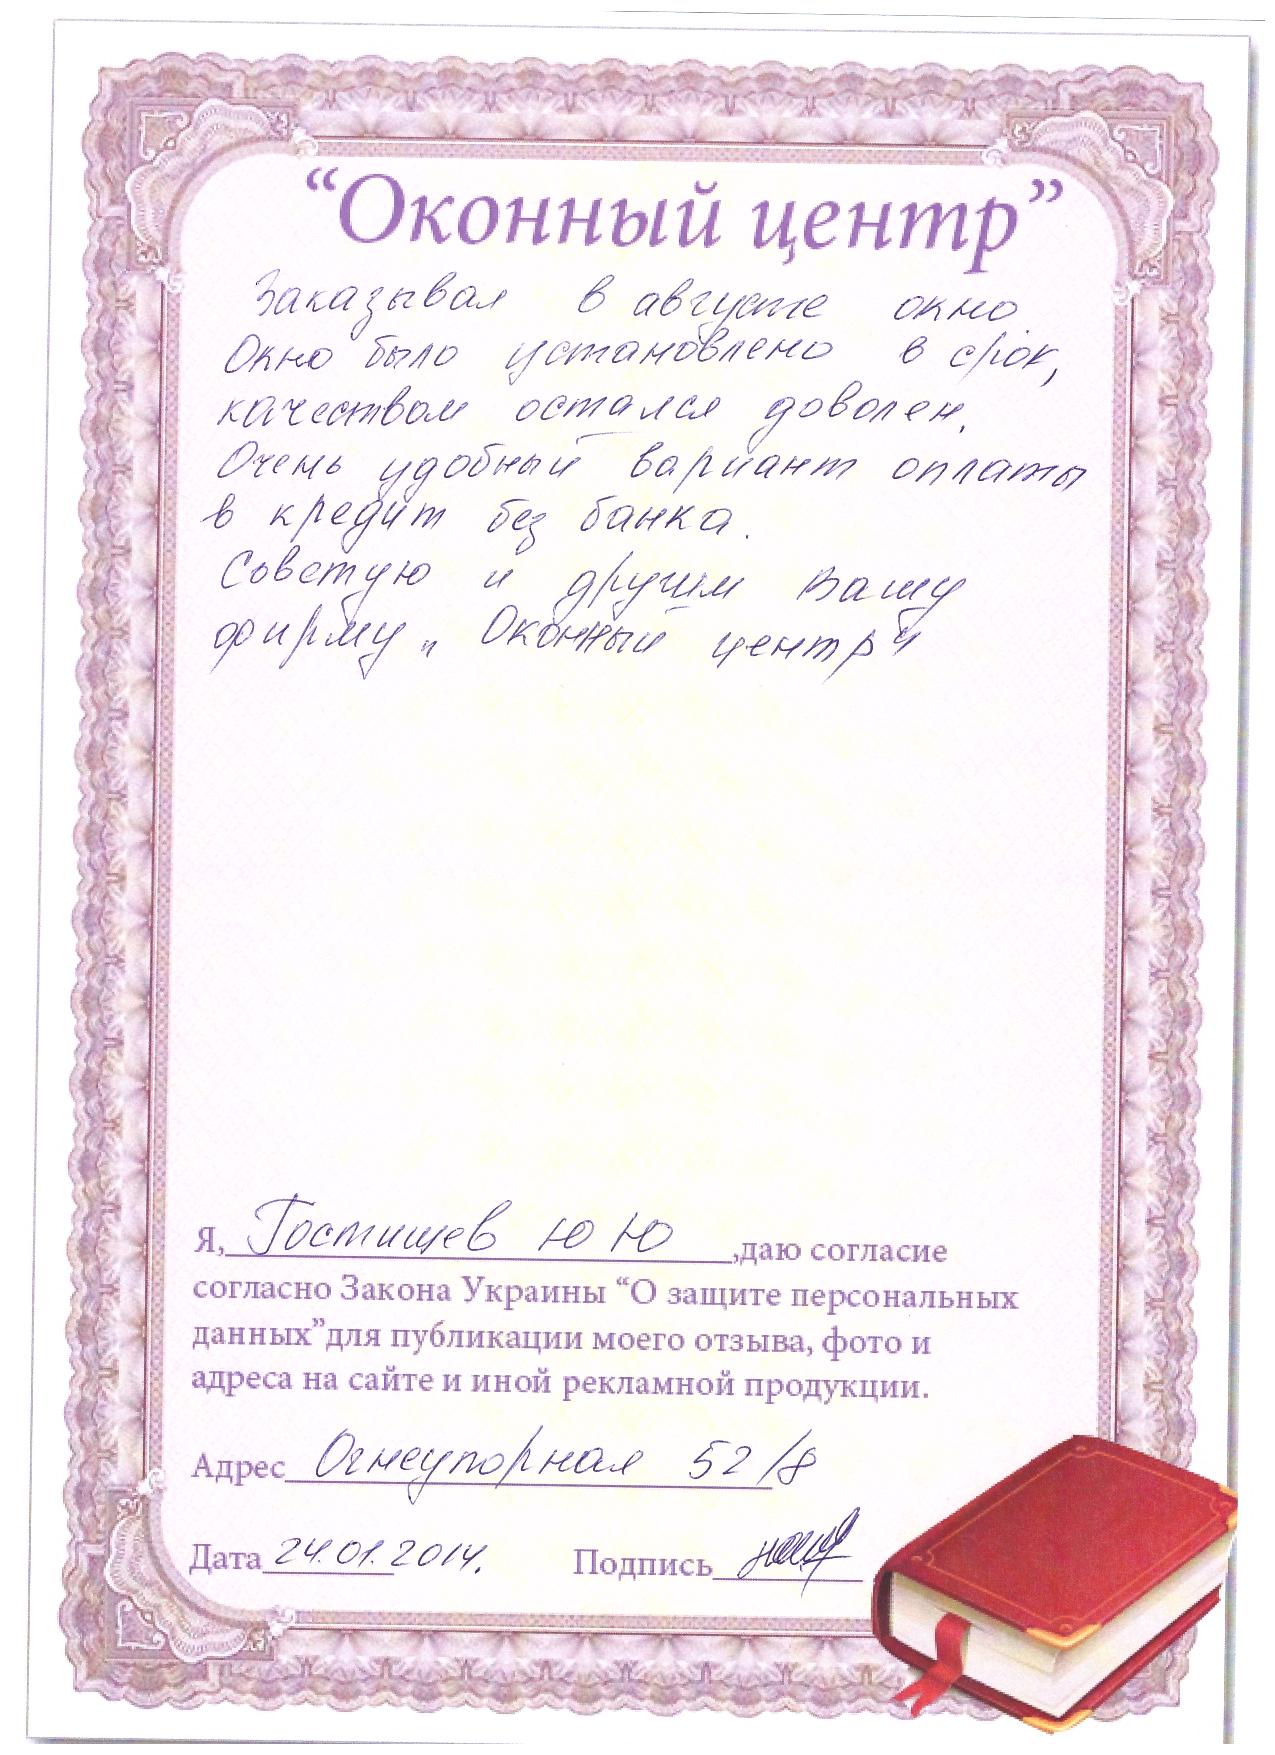 “Оконный центр”
Заказывал в августе окно.
Окно было установлено в срок,
качеством остался доволен.
Очень удобный вариант оплаты
в кредит без банка.
Советую и другим Вашу
фирму „Оконный центр“
Я, Гостищев Ю Ю ,даю согласие
согласно Закона Украины “О защите персональных
данных”для публикации моего отзыва, фото и
адреса на сайте и иной рекламной продукции.
Адрес Огнеупорная 52/8
Дата 24.01.2014. Подпись